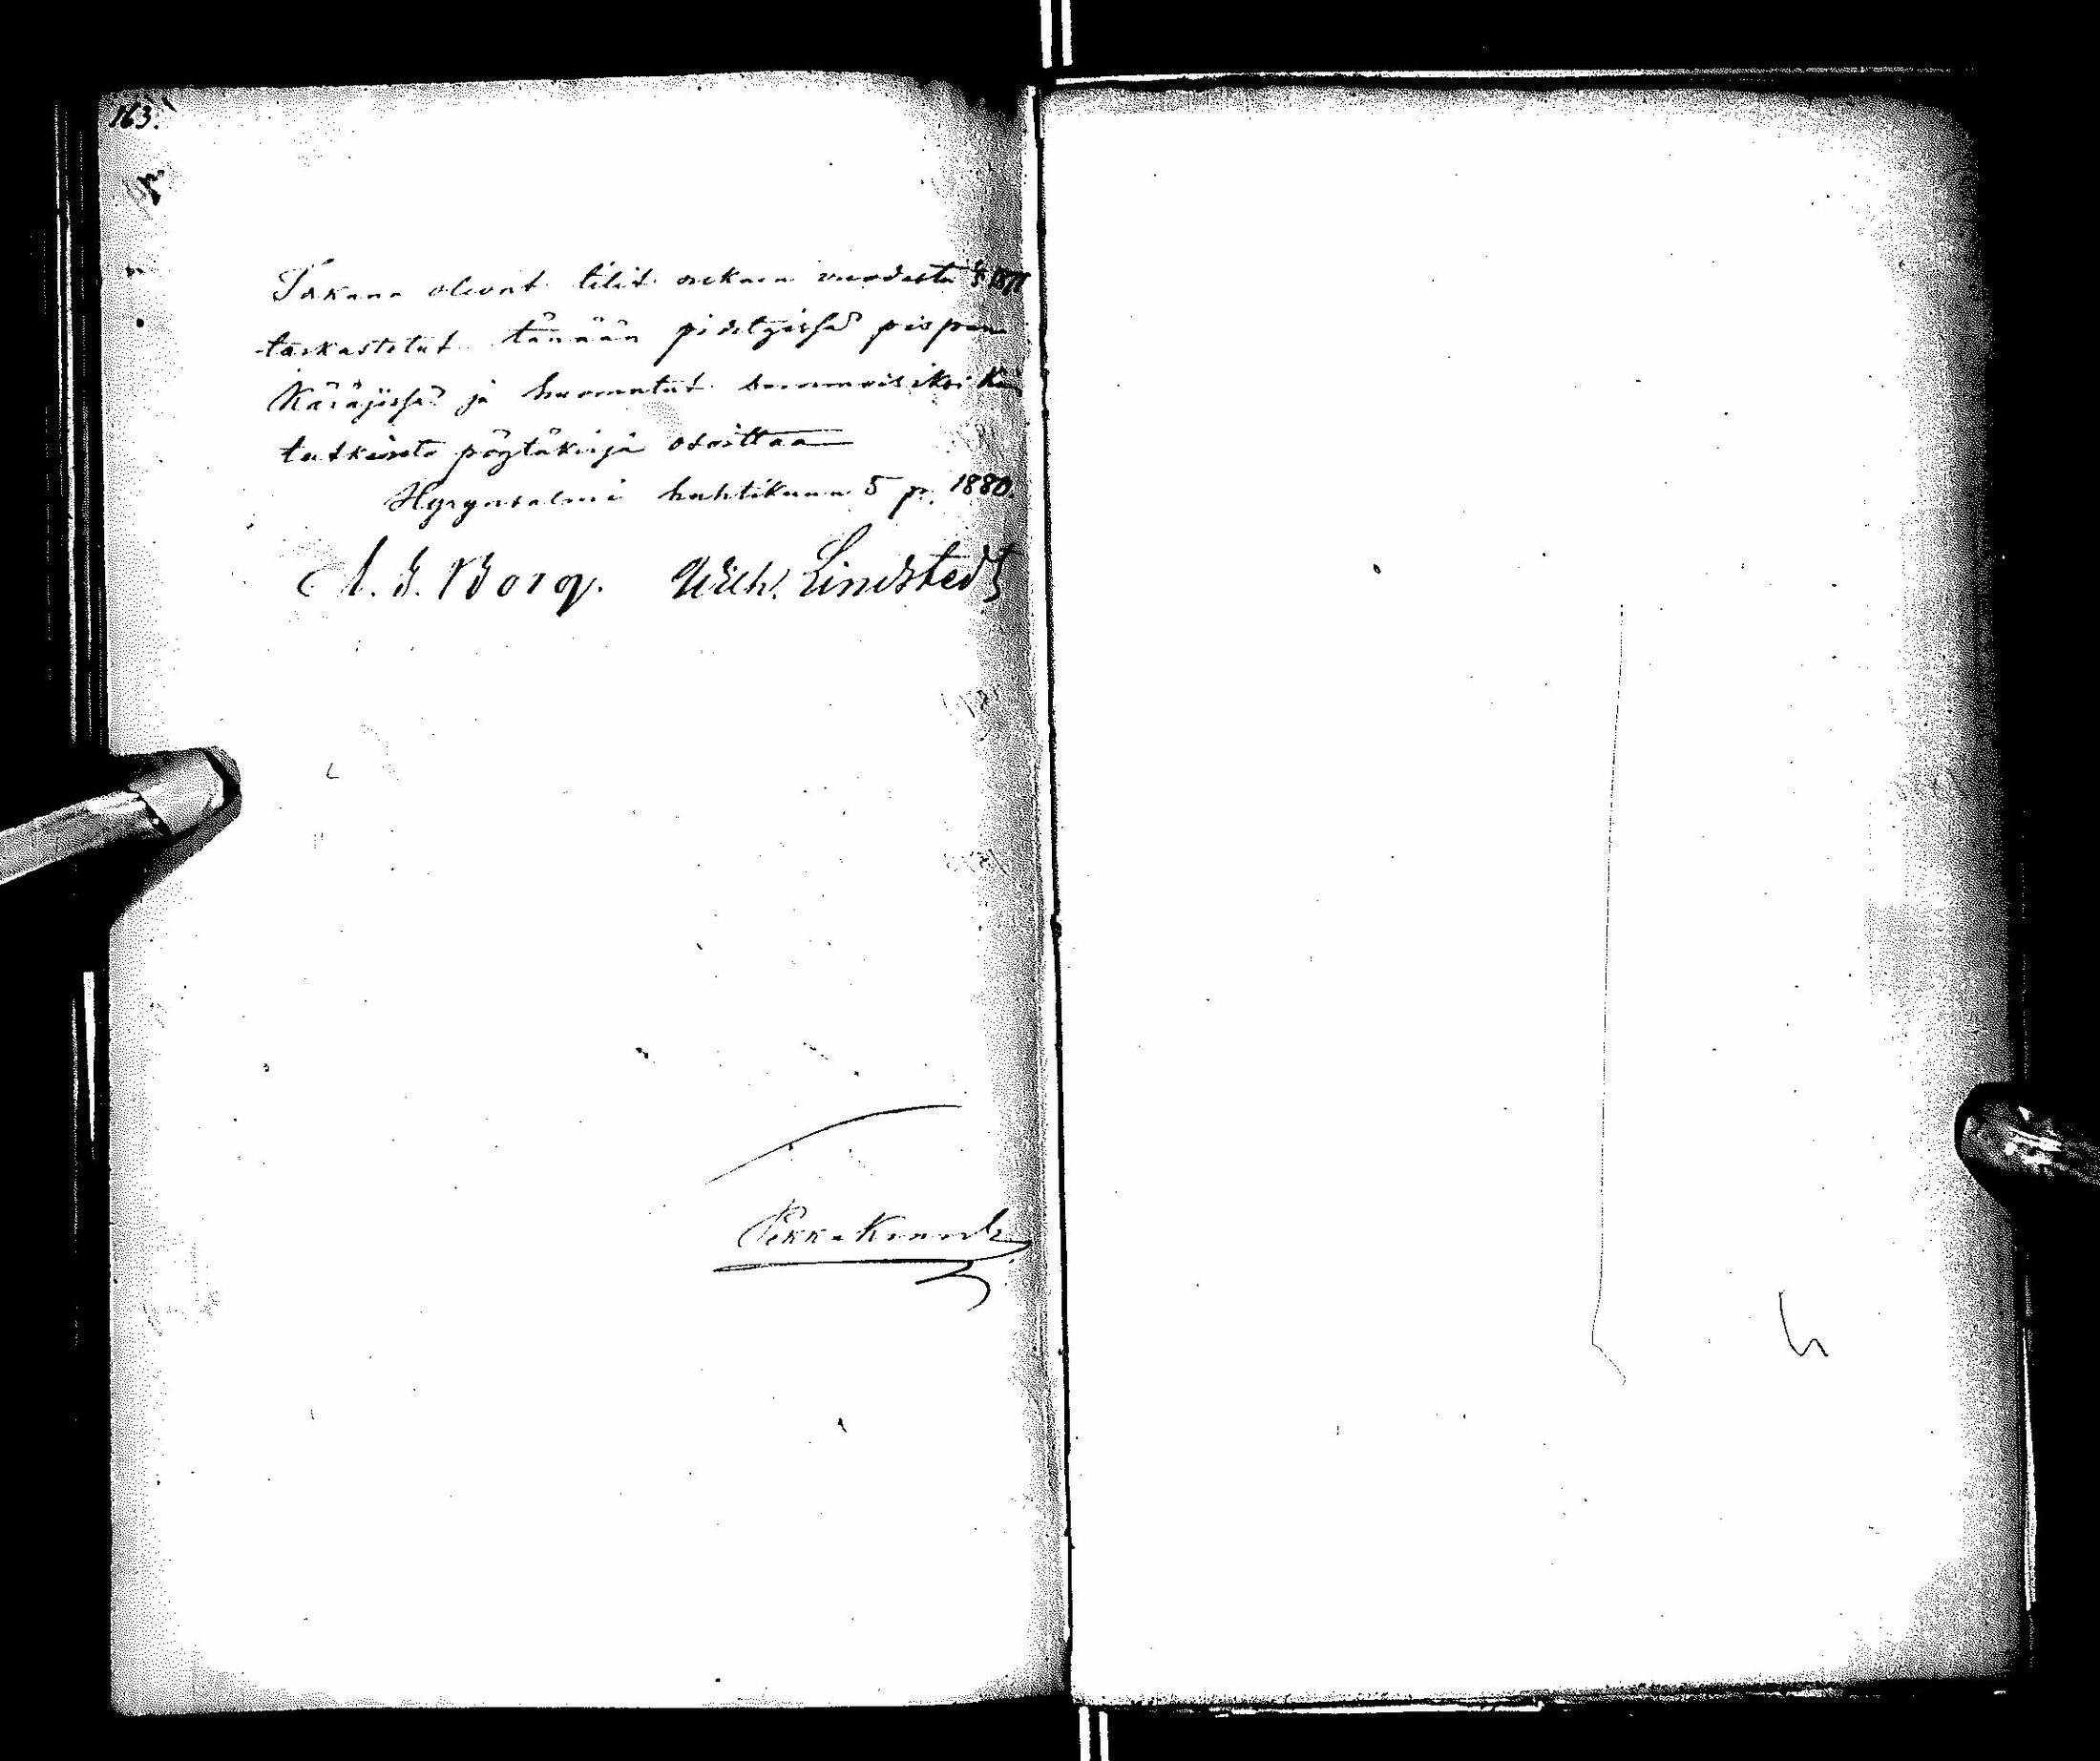 163.
Takana olevat tilit alkaen vuodesta 1877
tarkastetut tänään pidetyissä pispan
Käräjissä ja huomatut semmoisiksi kuin
tutkinto pöytäkirja osoittaa
Hyrynsalmi huhtikuun 5 p. 1880.
A. G. Borg. Wilh. Lindstedt
Pekka